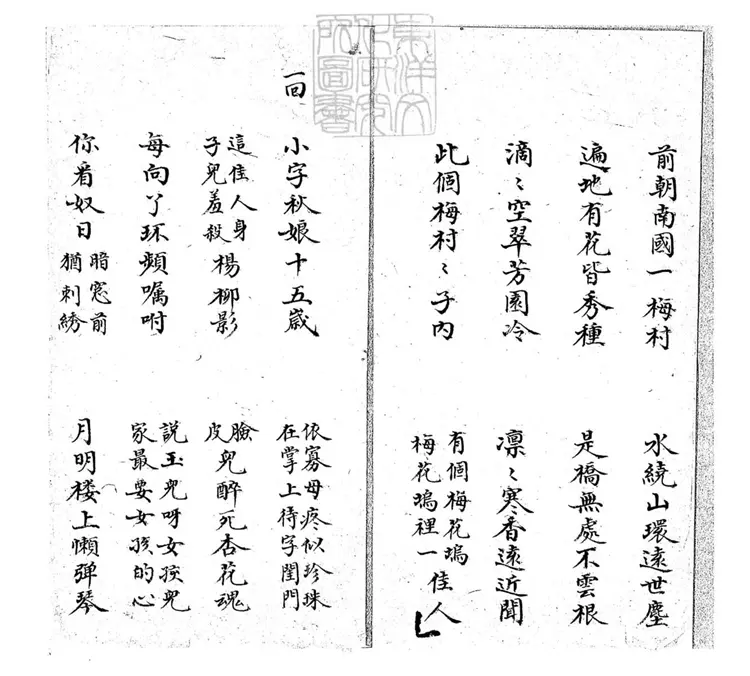 東洋文化研究所圖書
前朝南國一梅村　水繞山環遠世塵
遍地有花皆秀種　是橋無處不雲根
滴〻空翠芳園冷　凛〻寒香遠近聞
此個梅村〻子內　有個梅花塢梅花塢裡一佳人
一回
小字秋娘十五歲　依寡母疼似珍珠在掌上待字閨門
這佳人身子兒羞殺楊柳影　臉皮兒醉死杏花魂
每向了环頻囑咐　說玉兒呀女孩兒家最要女孩的心
你看奴日暗窓前猶刺綉　月明楼上懶弹琴